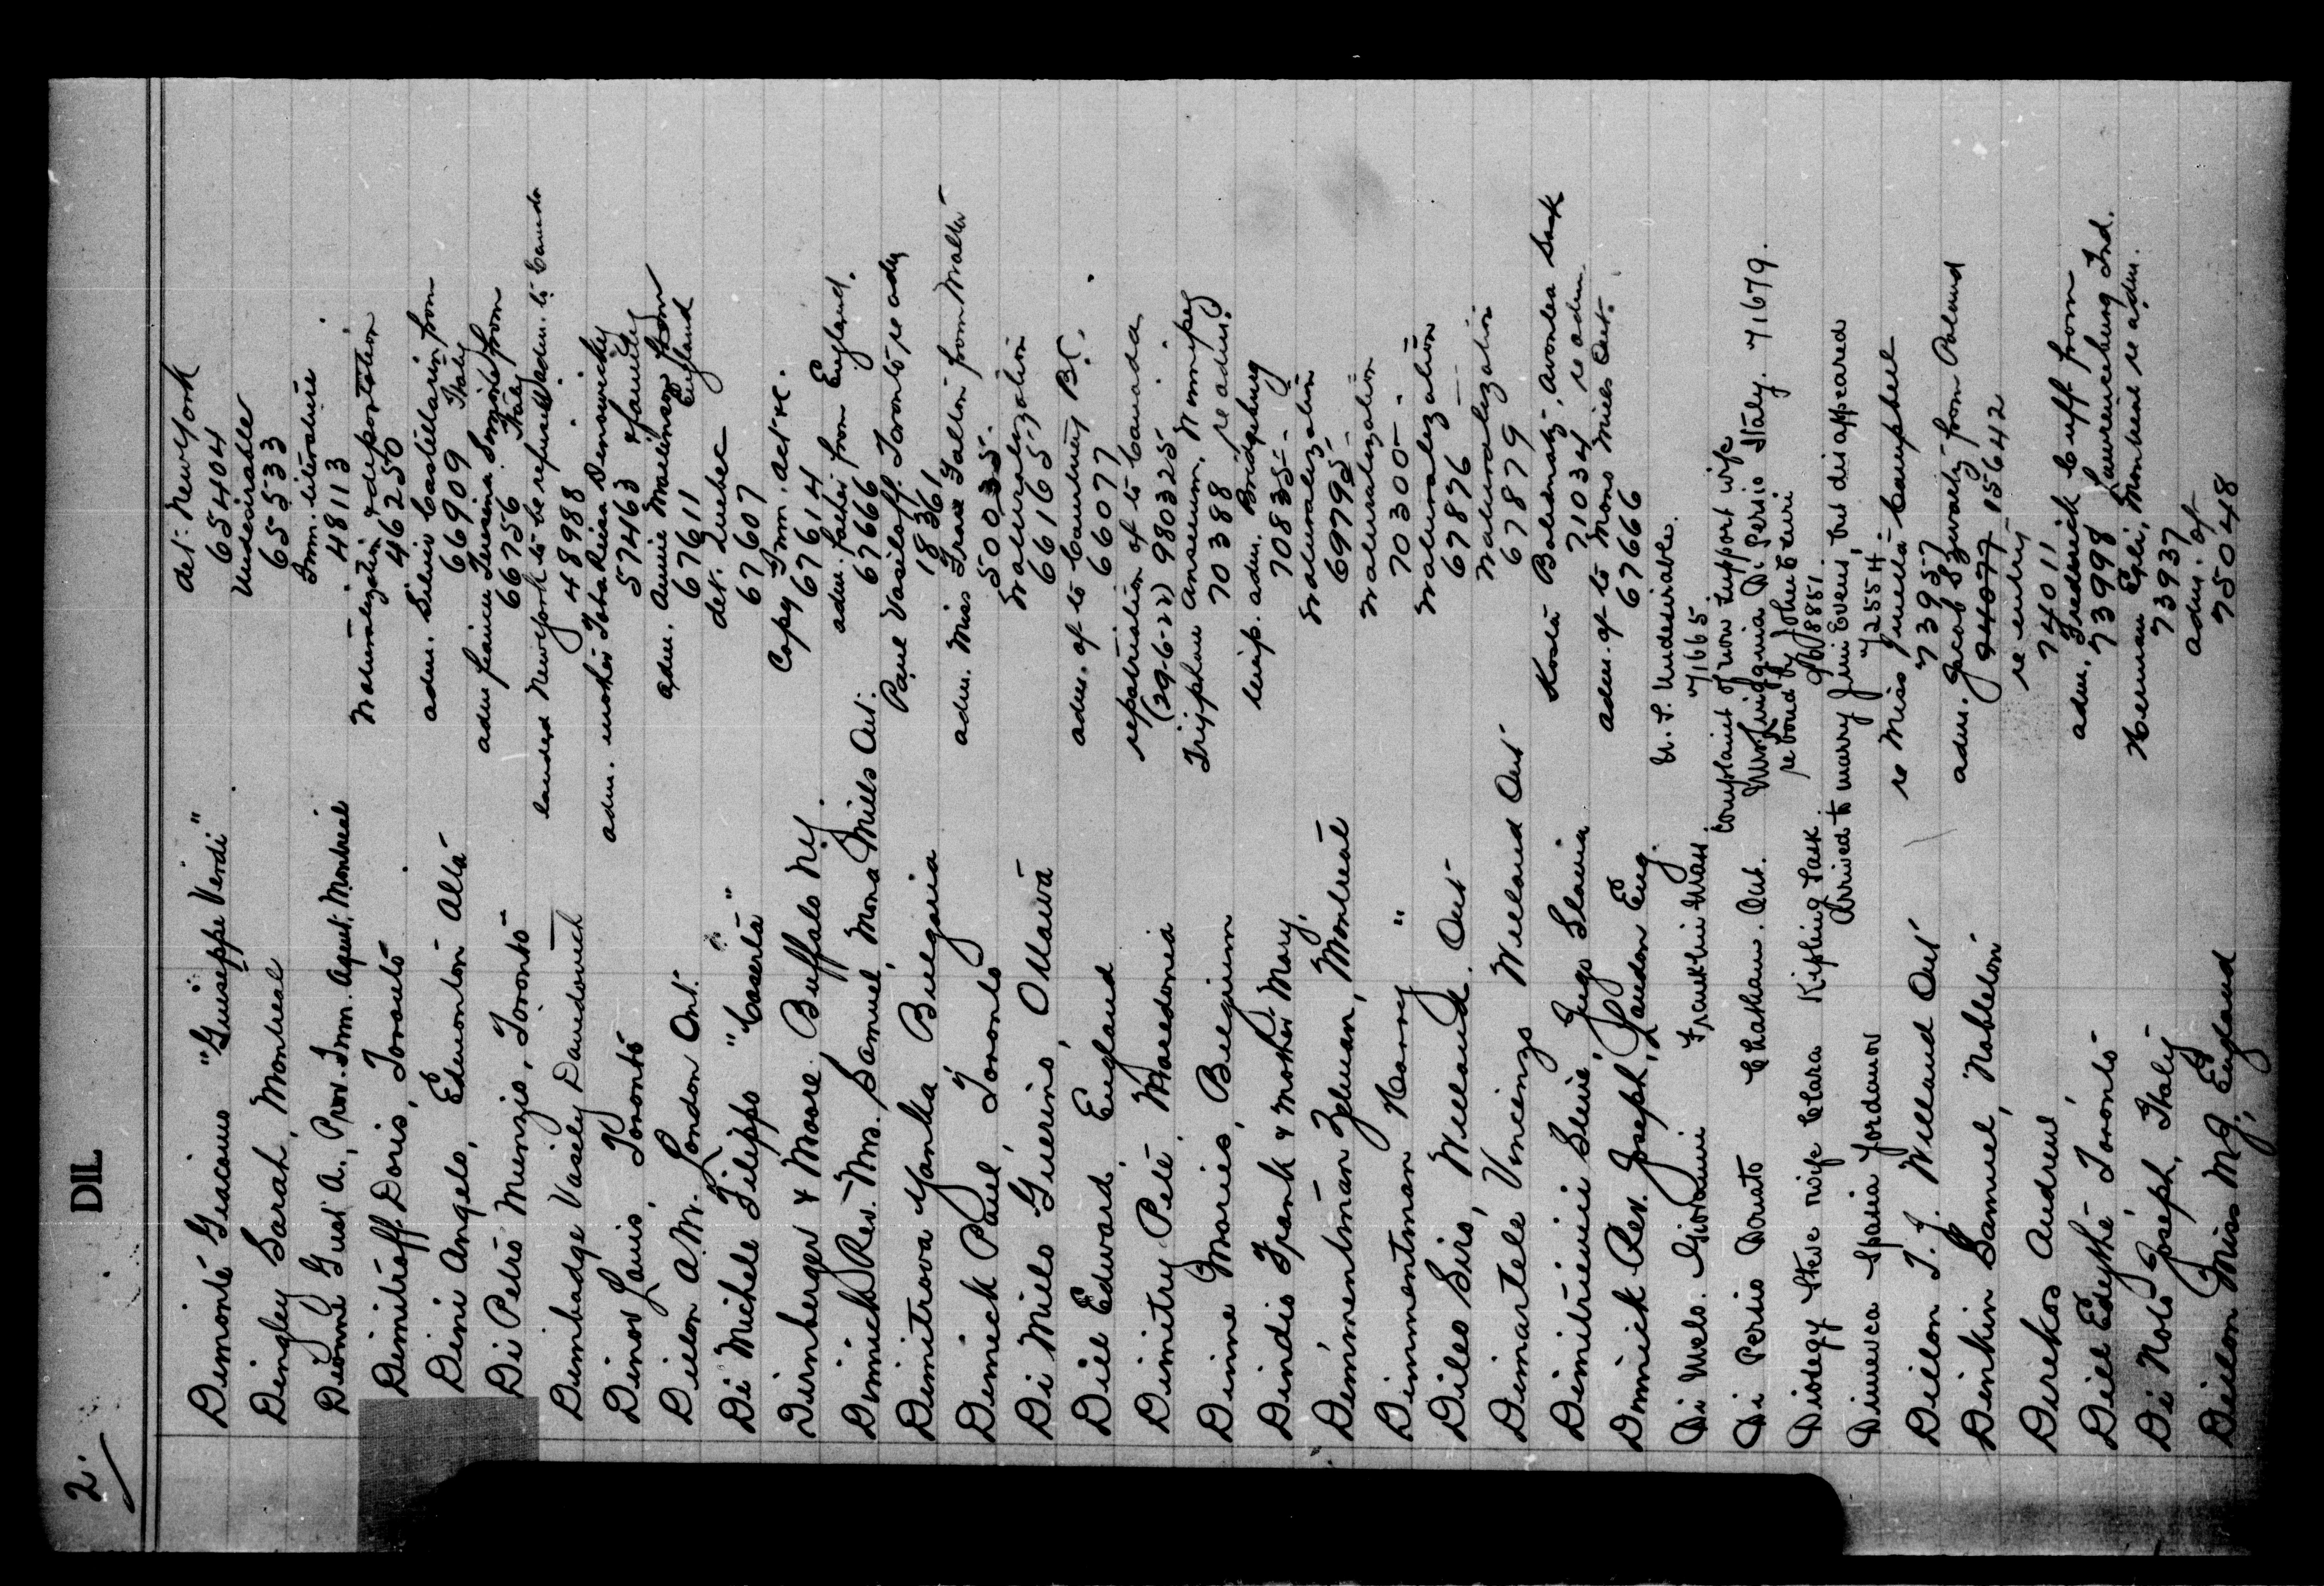 2.
DIL
Dimonte Giacomo "Guiseppe Verdi" det. New York
65404
Dingley Sarah, Montreal. Undesirable
65533
Dionne Gust A., Prov. Imm. Agent, Montreal Imm. literature.
48113
Dimitroff Doris, Toronto. Naturalization & deportation
46250
Dini Angelo, Edmonton Alta adm. Silvio Castellarin from
66909 Italy
Di Petro Munzio, Toronto adm fiance Teresina from
66756 Italy
Dumbadge Vasely Davidovich landed New York to be refused adm. to Canada
48988
Dinov Louis, Toronto adm. mother Toba Reisa
57463 & family
Dillon A.M. London Ont. adm. Annie Mallinson from
67611 England
Di Michele Filippo "Caserta" det. Quebec
67607
Dirnberger & Moore, Buffalo NY. Copy Imm. Act re.
67614
Dimmick Rev. Mrs. Samuel, Mona Mills Ont. adm. father from England.
67666
Dimitrova Yanka Bulgaria Paul Vasiloff. Toronto re adm
18361
Dimick Paul, Toronto adm. Miss Grace Falloni from Malta
500335.
Di Milo Guerino, Ottawa Naturalization
66165
Dill Edward, England adm. of to Country B.C.
66077
Dimitry Pete, Macedonia repatriation of to Canada
(29-6-22) 980325
Dinne Marie, Belgium Anseeum, Winnipeg
70388 re adm.
Dindio Frank & mother Mary, temp. adm. Bridgeburg
70835
Dimmentman Zelman, Montreal Naturalization
69795
Dimmentman Harry " Naturalization
70300
Dileo Siro, Welland. Ont Naturalization
67876
Dimartele Vincenzo Welland Ont Naturalization
67879
Dimitrievic Slivie, Jugo Slavia Kosta, Avonlea Sask
71034 re adm
Dimmick Rev. Joseph, London Eng. adm. of to Mono Mills Ont.
67666
Di Melo. Giovanni Franklin Mass. U.S. Undesirables.
71665
Di Persio Donato Chatham. Ont. Complaint of non support wife
Mrs. Di Persio Italy. 71679.
Diodegy Steve wife Clara Kipling Sask. re bond by John
9W8851
Dimieva Spasia Jordanov Arrived to marry Jim Evens, but disappeared
72554
Dillon T. J. Welland Ont re Miss Campbell
73957
Dinkin Samuel, adm. Jacob from Poland
94077 15642
Direkos Andrew, re entry
74011
Dill Edythe, Toronto adm. Fredrick Cuff from
73998 Lawrenceburg Ind.
Di Nolo Joseph, Italy Herman Egli, Montreal re adm.
73937
Dillon Miss M.J., England adm. of
75048